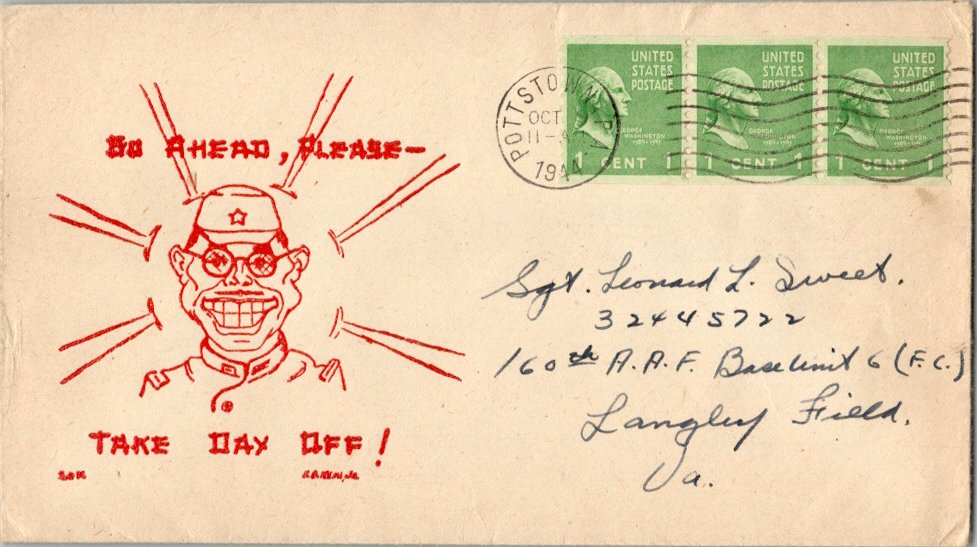 Go Ahead, Please—
Take Day Off!
UNITED STATES POSTAGE
GEORGE WASHINGTON
1789-1797
1 CENT 1
UNITED STATES POSTAGE
GEORGE WASHINGTON
1789-1797
1 CENT 1
UNITED STATES POSTAGE
GEORGE WASHINGTON
1789-1797
1 CENT 1
POTTSTOWN PA
OCT
11-A
1944
Sgt. Leonard L. Sweet.
32445722
160th A.A.F. Base Unit 6 (F.C.)
Langley Field.
Va.